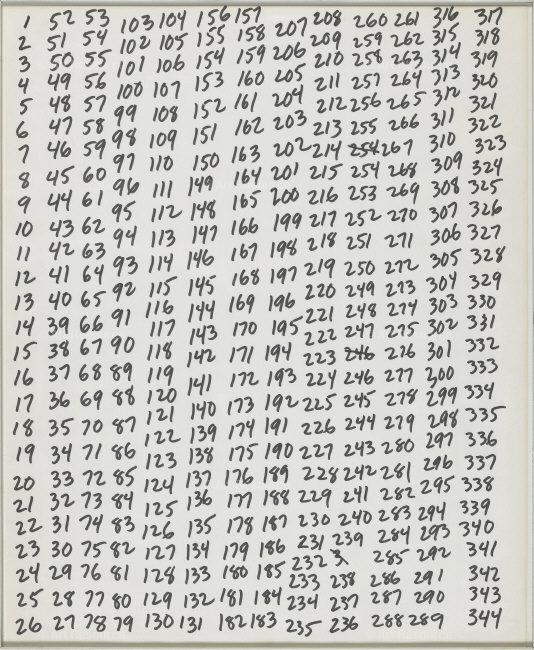 1 52 53 103 104 156 157 207 208 260 261 316 317
2 51 54 102 105 155 158 206 209 259 262 315 318
3 50 55 101 106 154 159 205 210 258 263 314 319
4 49 56 100 107 153 160 204 211 257 264 313 320
5 48 57 99 108 152 161 203 212 256 265 312 321
6 47 58 98 109 151 162 202 213 255 266 311 322
7 46 59 97 110 150 163 201 214 254 267 310 323
8 45 60 96 111 149 164 200 215 254 268 309 324
9 44 61 95 112 148 165 199 216 253 269 308 325
10 43 62 94 113 147 166 198 217 252 270 307 326
11 42 63 93 114 146 167 197 218 251 271 306 327
12 41 64 92 115 145 168 196 219 250 272 305 328
13 40 65 91 116 144 169 195 220 249 273 304 329
14 39 66 90 117 143 170 194 221 248 274 303 330
15 38 67 89 118 142 171 193 222 247 275 302 331
16 37 68 88 119 141 172 192 223 246 276 301 332
17 36 69 87 120 140 173 191 224 246 277 300 333
18 35 70 86 121 139 174 190 225 245 278 299 334
19 34 71 85 122 138 175 189 226 244 279 298 335
20 33 72 84 123 137 176 188 227 243 280 297 336
21 32 73 83 124 136 177 187 228 242 281 296 337
22 31 74 82 125 135 178 186 229 241 282 295 338
23 30 75 81 126 134 179 185 230 240 283 294 339
24 29 76 80 127 133 180 184 231 239 284 293 340
25 28 77 79 128 132 181 183 232 3 285 292 341
26 27 78 129 131 182 233 238 286 291 342
130 234 237 287 290 343
235 236 288 289 344